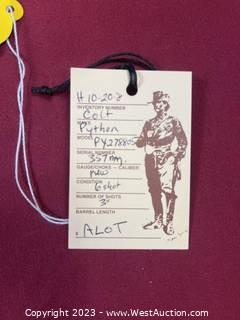 H 10-20-8
INVENTORY NUMBER
Colt
MAKE
Python
MODEL PY278805
SERIAL NUMBER
357 mag.
GAUGE/CHOKE — CALIBER
new
CONDITION
6 shot
NUMBER OF SHOTS
3"
BARREL LENGTH
ALOT
Copyright 2023 - www.WestAuction.com